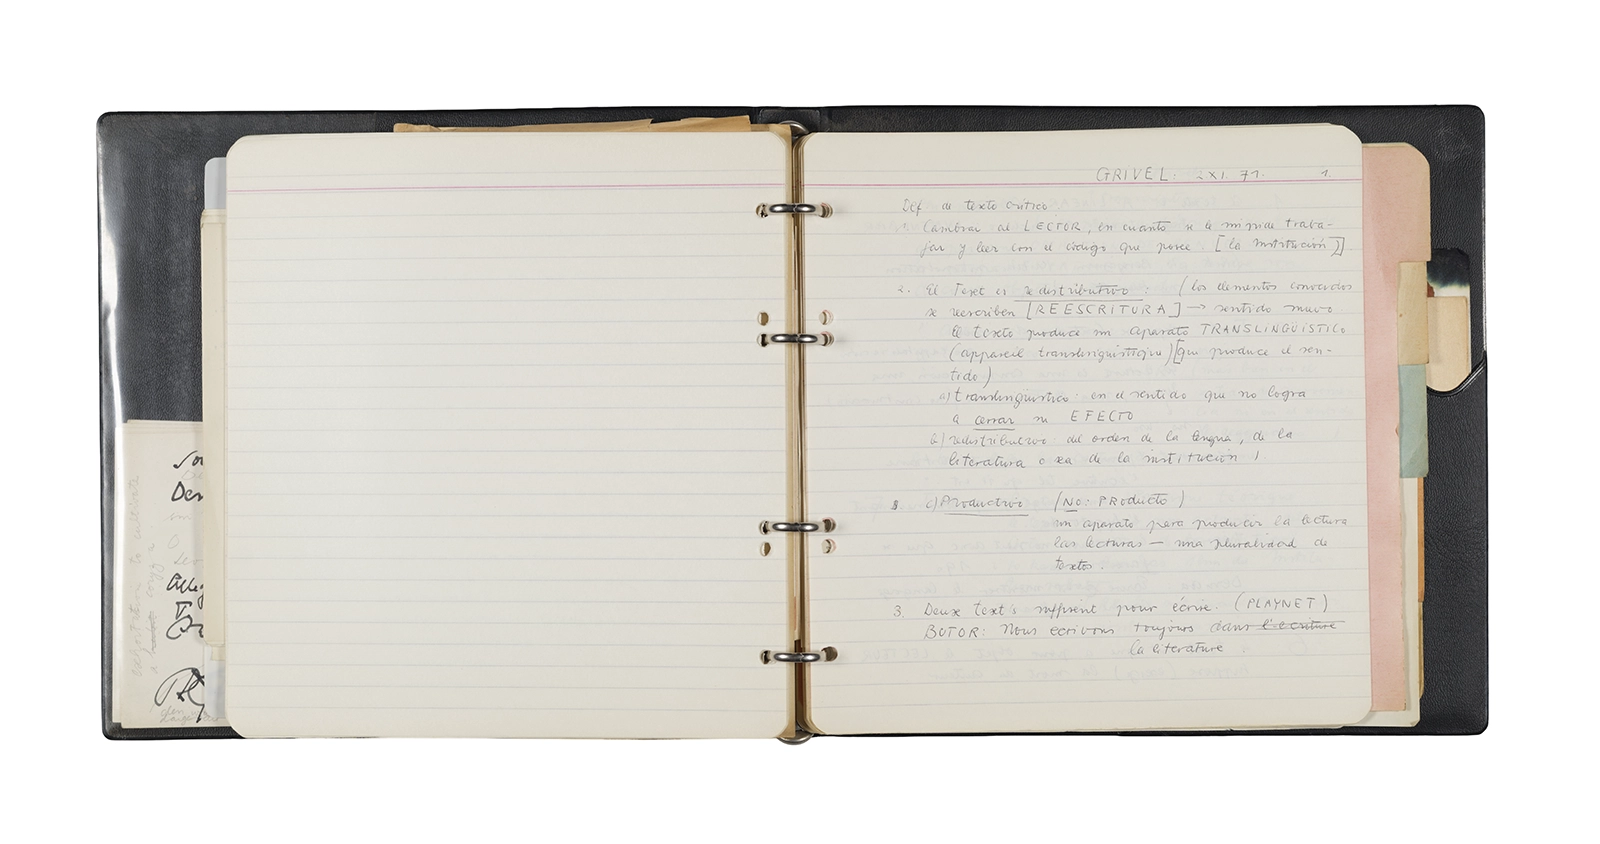 exhortation to cultivate
a copyz a
Den
GRIVEL. 2 XI. 71. 1.
Def de texto crítico
1. Cambiar al LECTOR, en cuanto se le impide traba-
jar y leer con el código que posee. [la institución]
2. El Text es redistributivo: (los elementos conocidos
se reescriben [REESCRITURA] → sentido nuevo
El texto produce un aparato TRANSLINGÜISTICO
(appareil translinguistique) [que produce el sen-
tido)
a) translingüistico: en el sentido que no logra
a cerrar su EFECTO
b) redistributivo del orden de la lengua, de la
literatura o sea de la institución).
c) Productivo (NO: PRODUCTO)
un aparato para producir la lectura
las lecturas — una pluralidad de
textos.
3. Deux text's suffisent pour écrire. (PLAYNET)
BUTOR: Nous ecrivons toujours dans l'ecriture
la literature